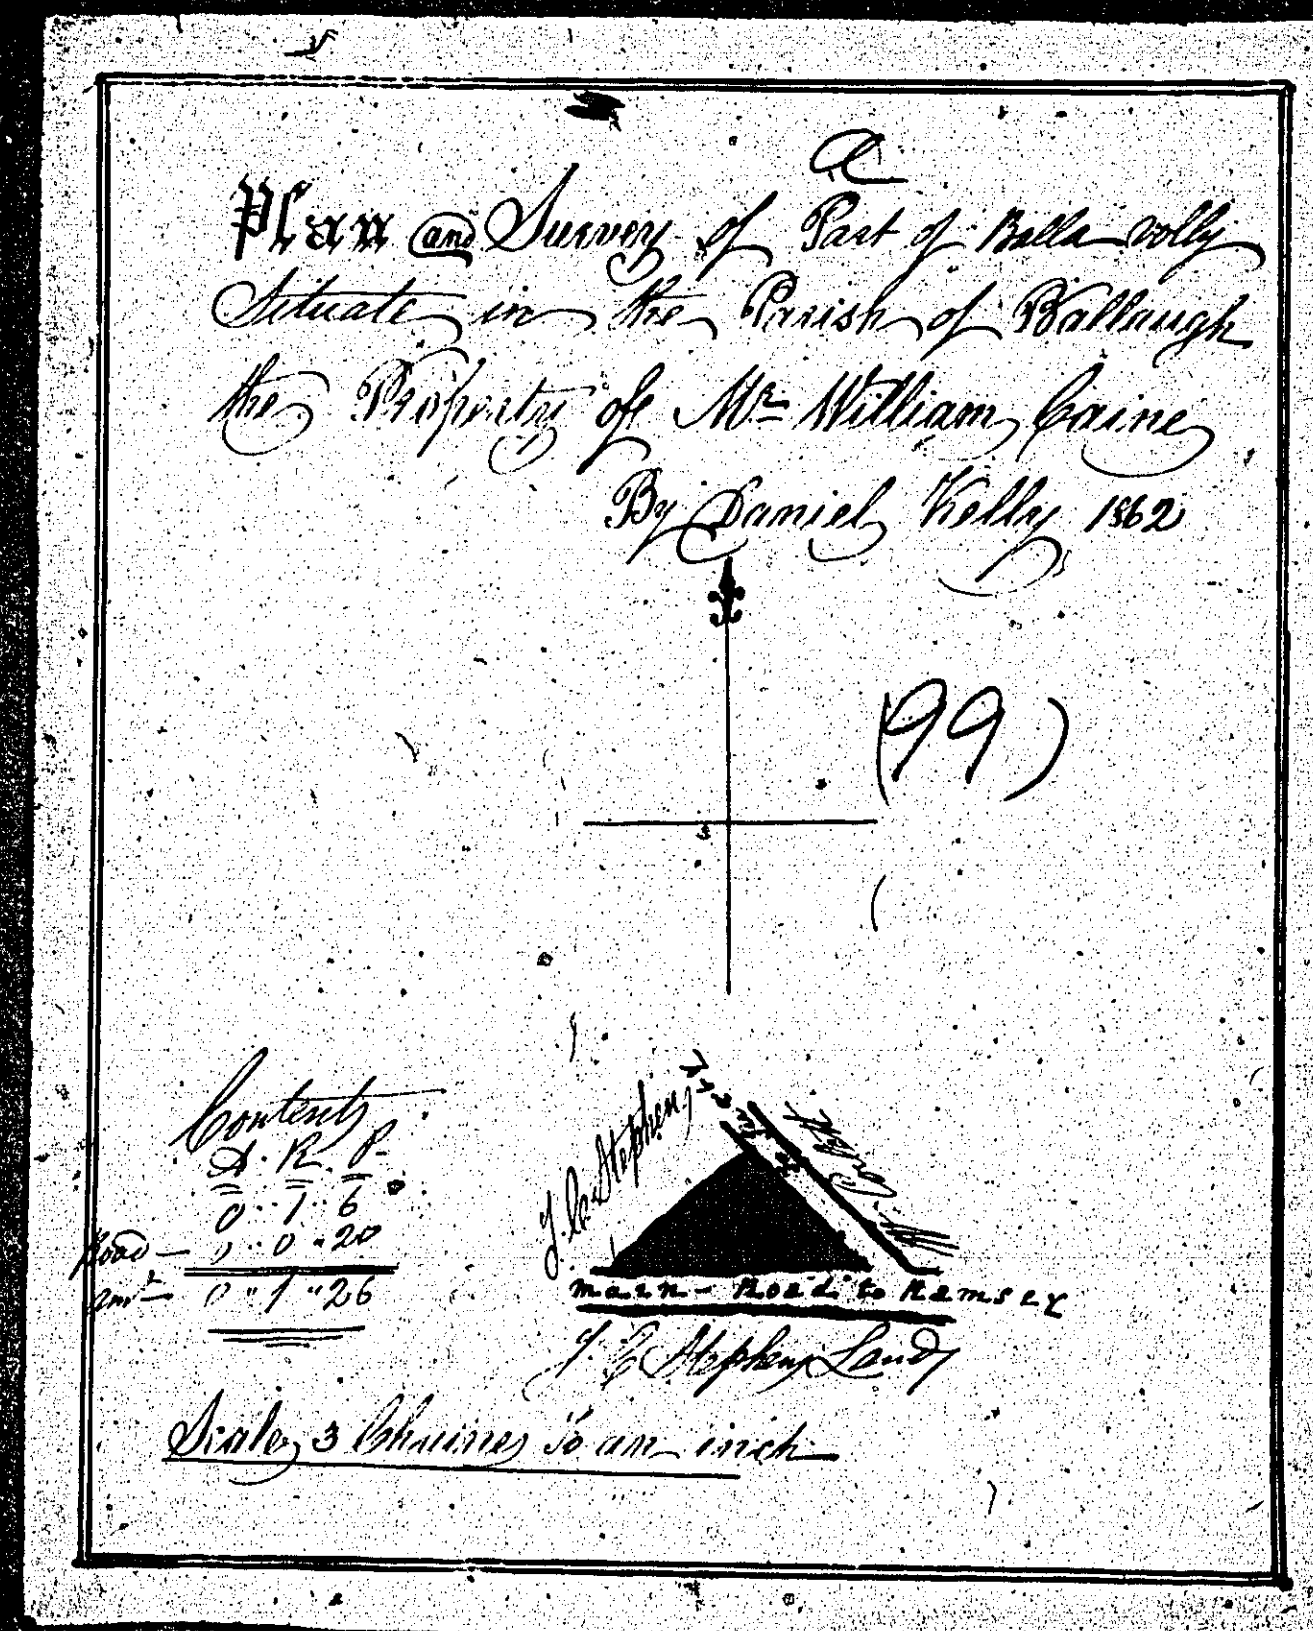 a
Plan and Survey of Part of Balla volly
Situate in the Parish of Ballaugh
the Property of Mr William Caine
By Daniel Kelly 1862
(99)
Contents
A. R. P.
0 .. 1 .. 6
Road — ,, .. 0 .. 20
0 .. 1 .. 26
J. C. Stephen
W. Corlett
main - Road to Ramsey
J. C Stephen Land
Scale 3 Chaines to an inch